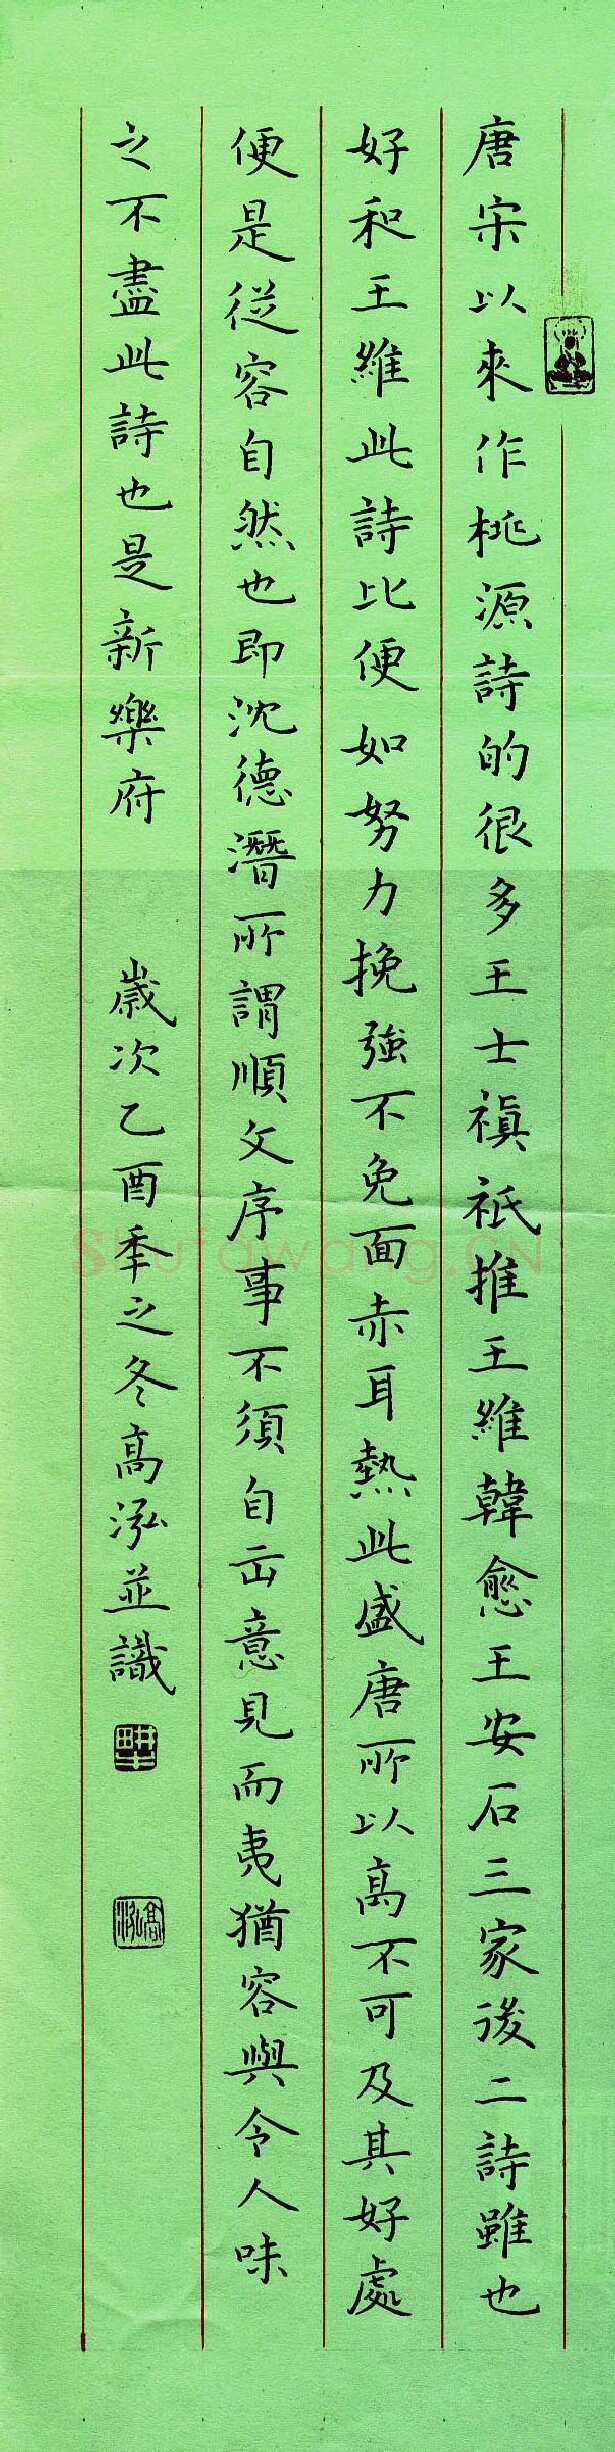 唐宋以來作桃源詩的很多王士禛衹推王維韓愈王安石三家後二詩雖也
好和王維此詩比便如努力挽強不免面赤耳熱此盛唐所以高不可及其好處
便是從容自然也即沈德潛所謂順文序事不須自出意見而夷猶容與令人味
之不盡此詩也是新樂府 歲次乙酉季之冬高泓並識
高泓
Shufawang.CN